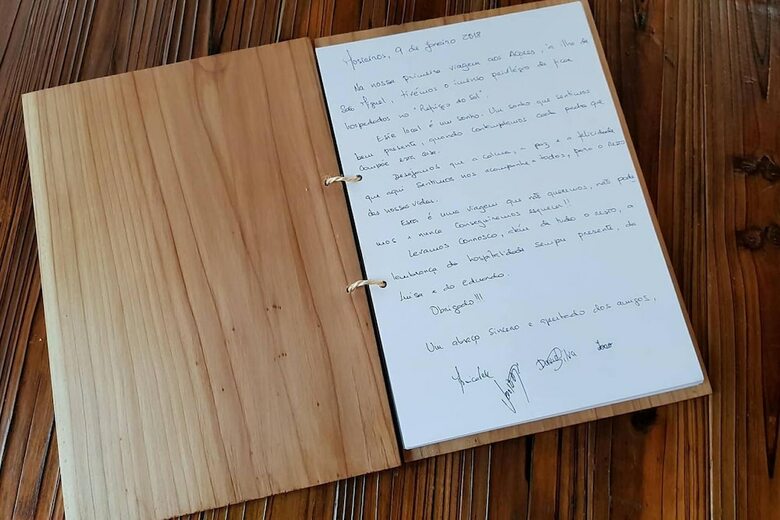 Mosteiros, 9 de Janeiro 2018
Na nossa primeira viagem aos Açores, à ilha de
São Miguel, tivemos o imenso privilégio de ficar
hospedados no "Refúgio do Sol"
Este local é um sonho. Um sonho que sentimos
bem presente, quando contemplamos cada pedra que
compõe esta casa.
Desejamos que a calma, a paz e a felicidade
que aqui sentimos nos acompanhe a todos, para o resto
das nossas vidas.
Esta é uma viagem que não queremos, não pode
mos e nunca conseguiremos esquecer!!
Levamos connosco, além de tudo o resto, a
lembrança da hospitalidade sempre presente, da
Luisa e do Eduardo.
Obrigado!!!
Um abraço sincero e apertado dos amigos,
Silva